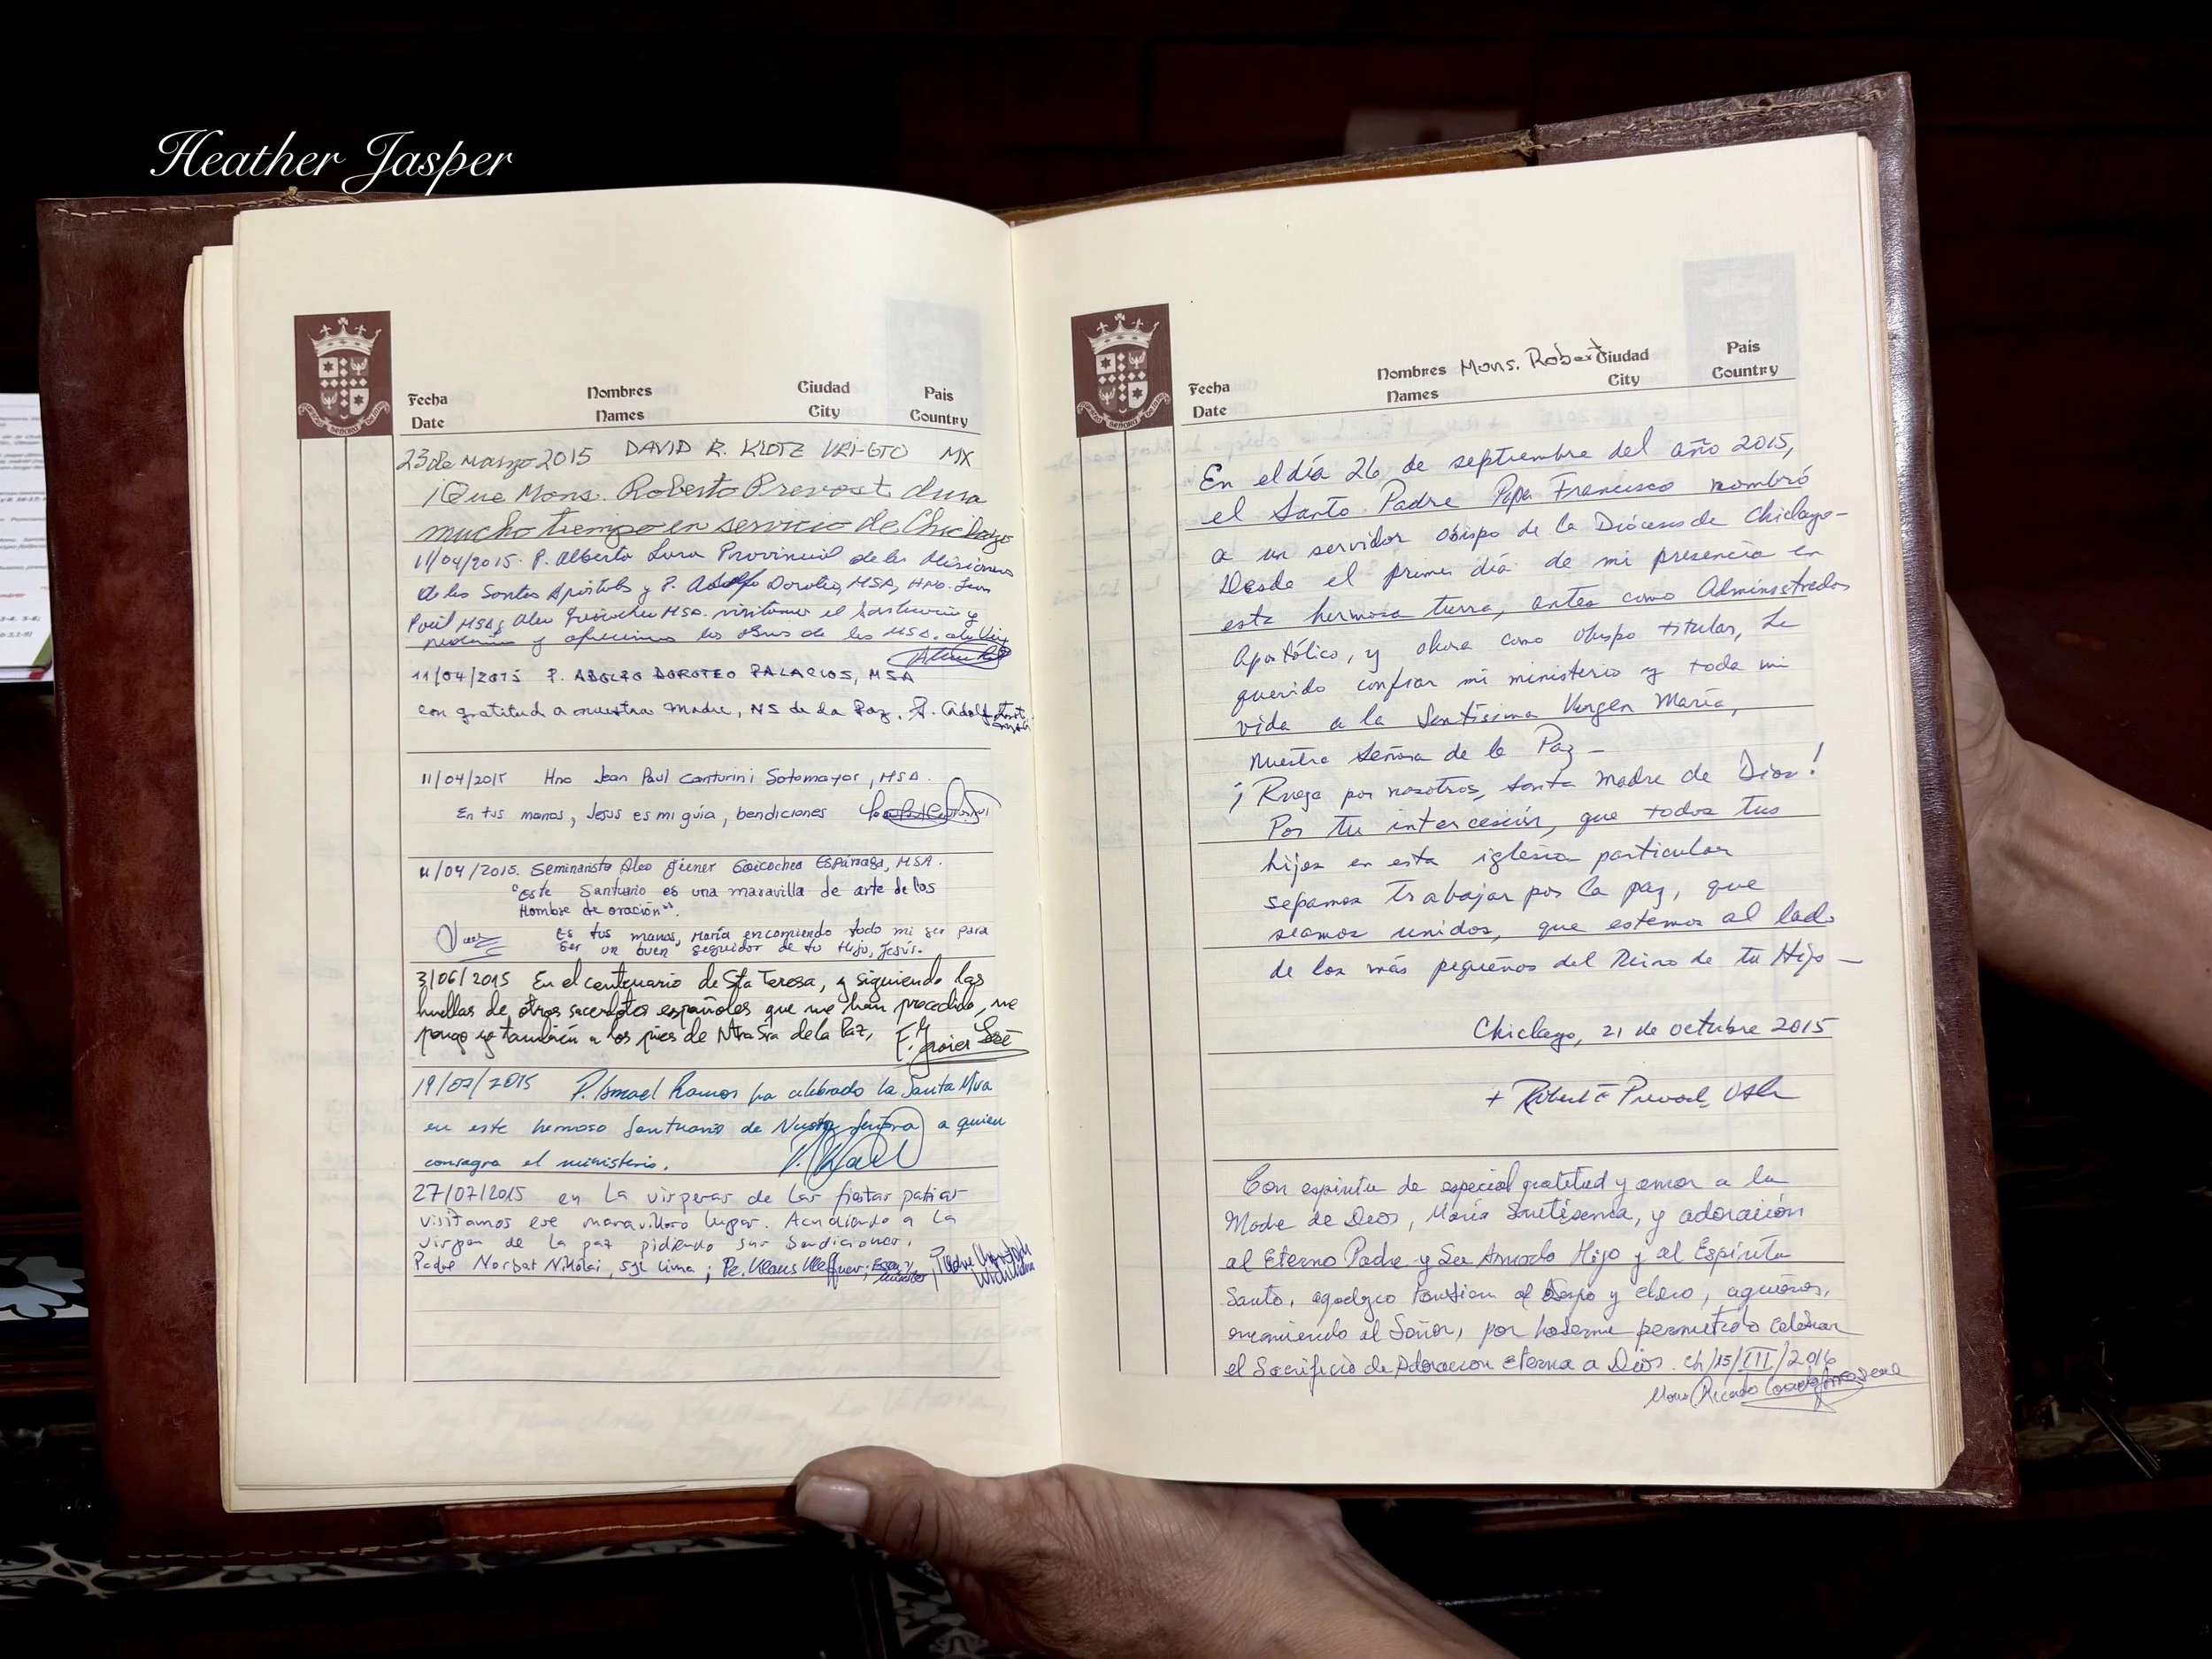 Heather Jasper
Fecha Nombres Ciudad Pais
Date Names City Country
23 de marzo 2015 DAVID R. KLOTZ MX
¡Que Mons. Roberto Prevost dura
mucho tiempo en servicio de Chiclayo
11/04/2015. P. Alberto Luna Provincial de los Misioneros
de los Santos Apóstoles y P. Adolfo Doroteo, MSA, Hno. Jean
MSA, Alex Goicochea MSA. visitamos el Santuario y
y ofrecimos las obras de los MSA.
11/04/2015 P. ADOLFO DOROTEO PALACIOS, MSA
con gratitud a nuestra Madre, NS de la Paz. P. Adolfo
11/04/2015 Hno Jean Paul Canturini Sotomayor, MSA.
En tus manos, Jesus es mi guía, bendiciones
11/04/2015. Seminarista Alex Goicochea Espárraga, MSA.
"Este Santuario es una maravilla de arte de los
Hombre de oración".
Es tus manos, María encomiendo todo mi ser para
ser un buen seguidor de tu Hijo, Jesús.
3/06/2015 En el centenario de Sta Teresa, y siguiendo las
huellas de otros sacerdotes españoles que me han precedido, me
pongo yo también a los pies de Ntra Sra de la Paz,
19/07/2015 P. Ismael Ramos ha celebrado la Santa Misa
en este hermoso Santuario de Nuestra Señora a quien
consagra el ministerio.
27/07/2015 en la visperas de las fiestas patrias
visitamos ese maravilloso lugar. Acudiendo a la
virgen de la paz pidiendo sus bendiciones.
Padre Norbert Nikolai, Lima; Pe. Klaus
SEÑORÍO
Nombres Mons. Robert Ciudad Pais
Fecha Names City Country
Date
En el día 26 de septiembre del año 2015,
el Santo Padre Papa Francisco nombró
a un servidor obispo de la Diócesis de Chiclayo–
Desde el primer día de mi presencia en
esta hermosa tierra, antes como Administrador
Apostólico, y ahora como obispo titular, he
querido confiar mi ministerio y toda mi
vida a la Santísima Virgen María,
Nuestra Señora de la Paz –
¡Ruega por nosotros, santa madre de Dios!
Por tu intercesión, que todos tus
hijos en esta iglesia particular
sepamos trabajar por la paz, que
seamos unidos, que estemos al lado
de los más pequeños del Reino de tu Hijo –
Chiclayo, 21 de octubre 2015
+ Robert F Prevost, OSA
Con espíritu de especial gratitud y amor a la
Madre de Dios, María Santísima, y adoración
al Eterno Padre y Su Amado Hijo y al Espíritu
Santo, agradezco también al Obispo y clero, a quienes,
encomiendo al Señor, por haberme permitido celebrar
el Sacrificio de Adoracion Eterna a Dios. Ch/15/III/2016
Mons Ricardo